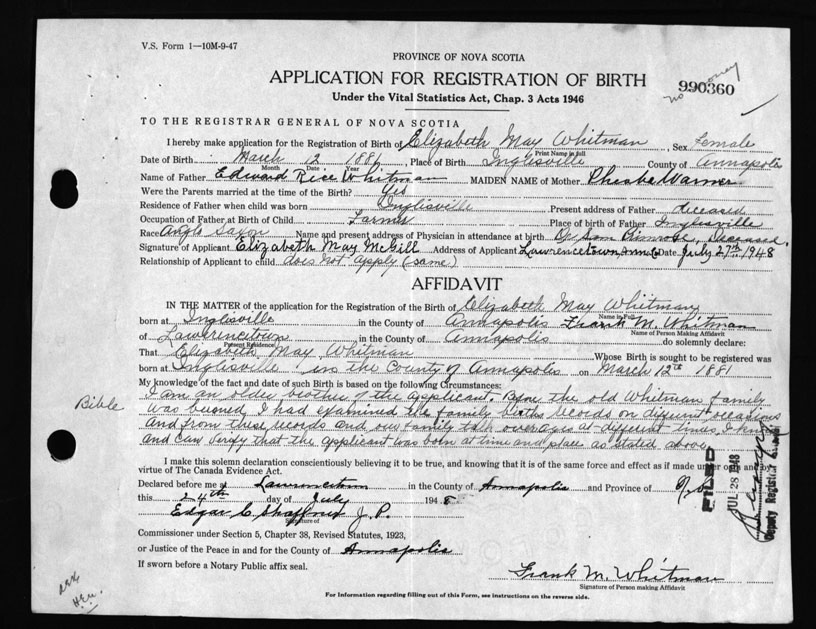 V.S. Form 1—10M-9-47
PROVINCE OF NOVA SCOTIA
APPLICATION FOR REGISTRATION OF BIRTH
Under the Vital Statistics Act, Chap. 3 Acts 1946
990360
no money
TO THE REGISTRAR GENERAL OF NOVA SCOTIA
I hereby make application for the Registration of Birth of Elizabeth May Whitman, Sex Female
Print Name in full
Date of Birth March 12 1881, Place of Birth Inglisville County of Annapolis
Month Date Year
Name of Father Edward Rice Whitman MAIDEN NAME of Mother Pheobe Warner
Were the Parents married at the time of Birth? Yes
Residence of Father when child was born Inglisville Present address of Father deceased
Occupation of Father at Birth of Child Farmer Place of birth of Father Inglesville
Race Anglo Saxon Name and present address of Physician in attendance at birth Primrose, Deceased.
Signature of Applicant Elizabeth May McGill Address of Applicant Lawrencetown, Ann. Co Date July 27th, 1948
Relationship of Applicant to child does not apply (same)
AFFIDAVIT
IN THE MATTER of the application for the Registration of the Birth of Elizabeth May Whitman
Name in Full
born at Inglisville in the County of Annapolis Frank M. Whitman
Name of Person Making Affidavit
of Lawrencetown in the County of Annapolis do solemnly declare:
Present Residence
That Elizabeth May Whitman Whose Birth is sought to be registered was
born at Inglisville in the County of Annapolis on March 12th 1881
My knowledge of the fact and date of such Birth is based on the following Circumstances:
I am an older brother of the applicant. Before the old Whitman family
Bible was burned, I had examined the family births records on different occasions
and from these records and our family talk over ages at different times, I know
and can verify that the applicant was born at time and place as stated above.
I make this solemn declaration conscientiously believing it to be true, and knowing that it is of the same force and effect as if made under oath and by
virtue of The Canada Evidence Act.
Declared before me at Lawrencetown in the County of Annapolis and Province of N.S.
this 24th day of July 1948
Edgar C. Shaffner J.P.
Signature of
Commissioner under Section 5, Chapter 38, Revised Statutes, 1923,
or Justice of the Peace in and for the County of Annapolis
If sworn before a Notary Public affix seal.
Frank M. Whitman
Signature of Person making Affidavit
For Information regarding filling out of this Form, see instructions on the reverse side.
FILED
JUL 28 1948
Deputy Registrar General